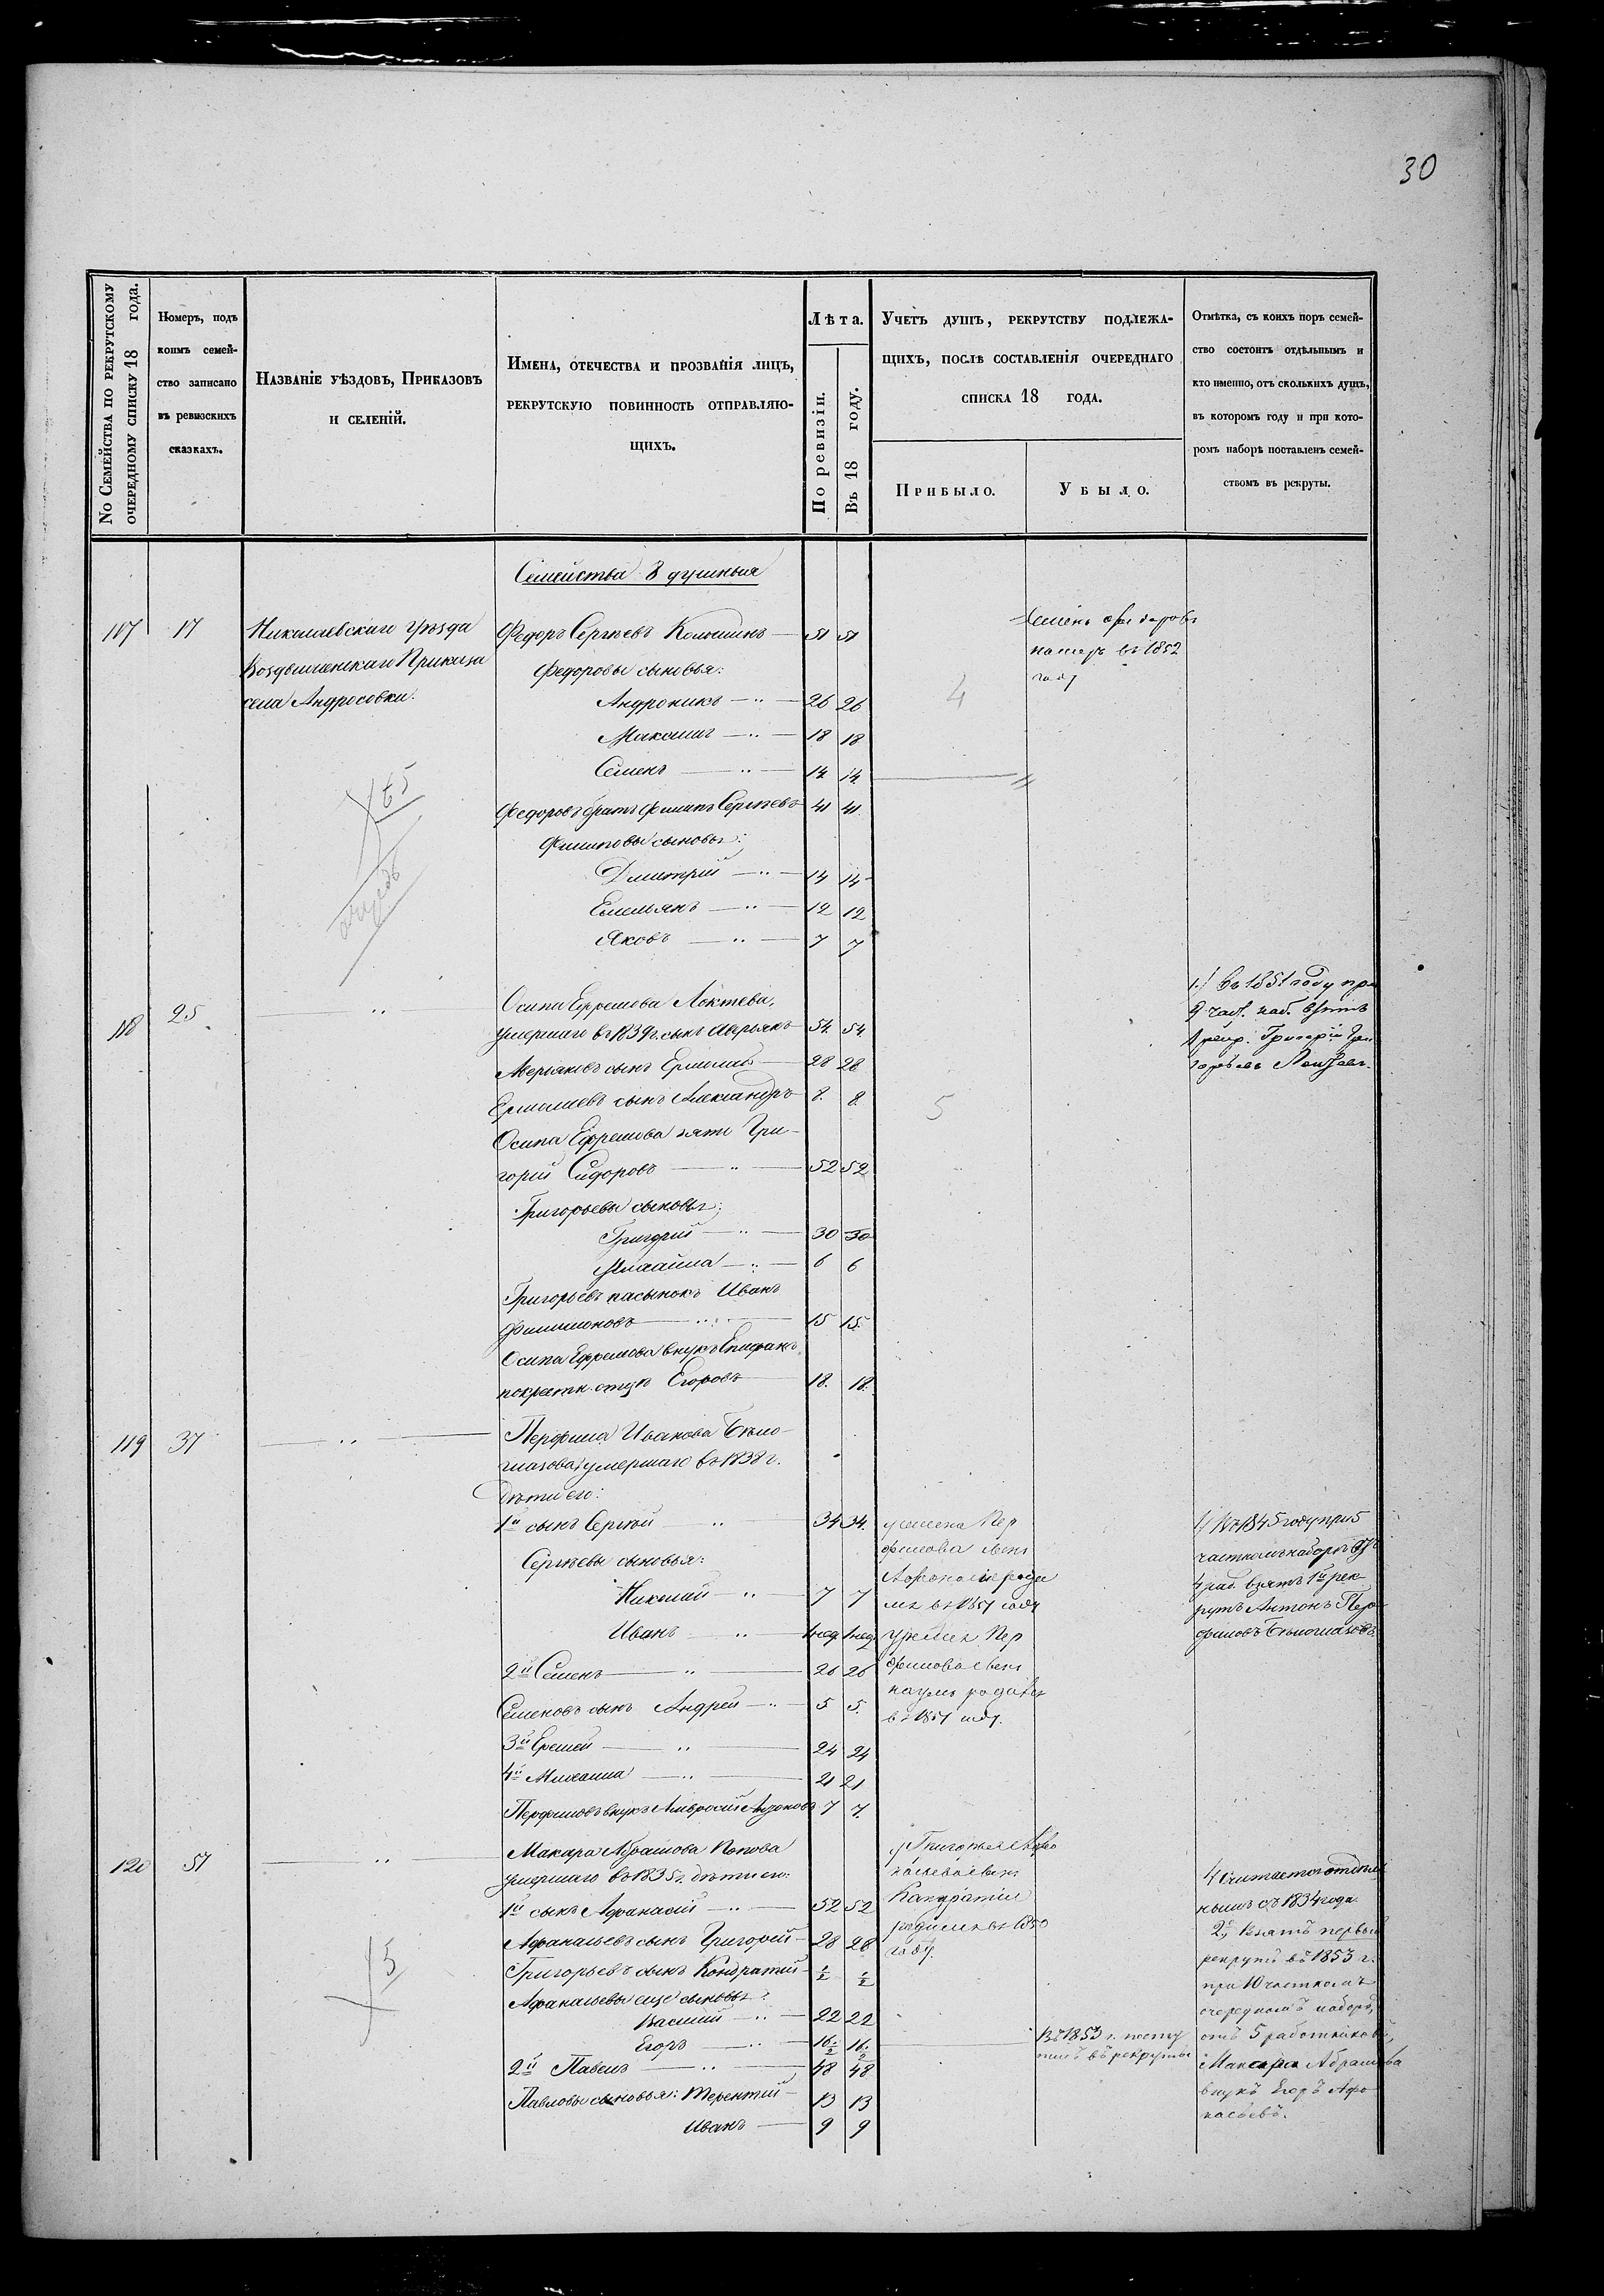 30
No Семейства по рекрутскому
очередному списку 18 года.
Номеръ, подъ
коимъ семей-
ство записано
въ ревизскихъ
сказкахъ.
Названіе уѣздовъ, Приказовъ
и селеній.
Имена, отечества и прозванія лицъ,
рекрутскую повинность отправляю-
щихъ.
Лѣта.
По ревизіи.
Въ 18 году.
Учетъ душъ, рекрутству подлежа-
щихъ, послѣ составленія очереднаго
списка 18 года.
Прибыло.
Убыло.
Отмѣтка, съ коихъ поръ семей-
ство состоитъ отдѣльнымъ и
кто именно, отъ сколькихъ душъ,
въ которомъ году и при кото-
ромъ наборѣ поставленъ семей-
ствомъ въ рекруты.
Семейства 8 душныя
117 17 Николаевскаго Уѣзда Федоръ Сергѣевъ 51 51 Семенъ
Воздвиженскаго Приказа Федоровы сыновья: въ 1852
села Андросовки. году
Андроникъ — " — 26 26 4
18 18
Семенъ — " — 14 14
65
Федоровъ братъ Филипъ Сергѣевъ 41 41
Филиповы сыновья:
Дмитрій — " — 14 14
Емельянъ — " — 12 12
Яковъ — " — 7 7
118 25 — " — Осипа Ефремова Локтева, 1.) Въ 1851 году при
умершаго въ 1839 г. сынъ Аверьянъ 54. 54. 9 част. наб. взятъ
Аверьяновъ сынъ Ермолай 28 28 Григорій Гри
Ермолаевъ сынъ Александръ 8. 8. 5
Осипа Ефремова зять Гри-
горій Сидоровъ — " — 52 52
Григорьевы сыновья:
Григорій — " — 30 30
Михайла — " — 6 6
Григорьевъ пасынокъ Иванъ
Филимоновъ — " — 15 15.
Осипа Ефремова внукъ Епифанъ
Егоровъ 18. 18.
119 37 — " — Перфила Иванова Бѣло-
глазова, умершаго въ 1838 г.
дѣти его:
1й сынъ Сергѣй — " — 34 34. у Семена Пер 1) Въ 1845 году при 5
Сергѣевы сыновья: филова сынъ частномъ наборѣ
Николай — " — 7 7 взятъ 1й рек-
въ 1851 году рутъ Антонъ Пер
Иванъ — " — 1 нед. 1 нед. Пер филовъ Бѣлоглазовъ.
2й Семенъ — " — 26 26 филова сынъ
Семеновъ сынъ Андрей — " — 5 5. Наумъ родился
въ 1851 году.
3й Еремей — " — 24 24
4й Михаила — " — 21 21
Перфиловъ внукъ Амвросій Антоновъ 7 7.
120 57 — " — Макара Абрамова Попова у Григорья Афо
умершаго въ 1835 г. дѣти его: насьева сынъ 1) Считается отдѣль
1й сынъ Афанасій — " — 52 52 Кандратій нымъ съ 1834 года.
Афанасьевъ сынъ Григорій — 28 28 родился въ 1850 2, Взятъ первый
Григорьевъ сынъ Кондратій — 1/2 1/2 году. рекрутъ въ 1853 г.
5
Афанасьевы еще сыновья: при 10 частномъ
Василій — " — 22 22 очередномъ наборѣ,
Егоръ — " — 16 1/2 16 1/2 Въ 1853 г. посту отъ 5 работниковъ,
2й Павелъ — " — 48 48 пилъ въ рекруты Макара Абрамова
Павловы сыновья: Терентій — 13 13 внукъ Егоръ Афо
Иванъ — 9 9 насьевъ.